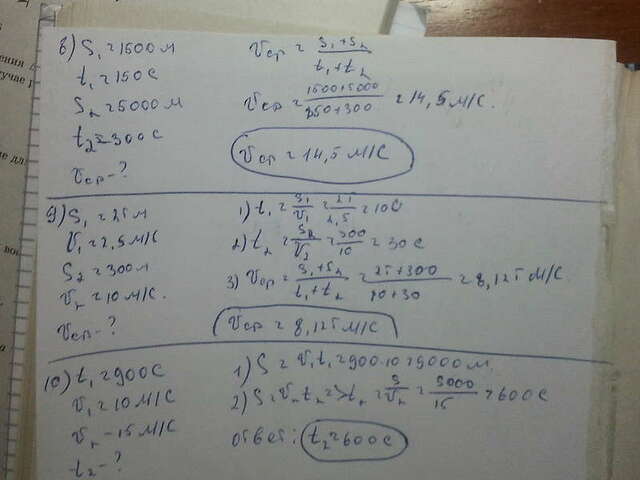 8) S₁ = 1500 м
t₁ = 150 с
S₂ = 5000 м
t₂ = 300 с
Vср - ?
Vср = (S₁ + S₂) / (t₁ + t₂)
Vср = (1500 + 5000) / (150 + 300) = 14,5 м/с.
Vср = 14,5 м/с
9) S₁ = 25 м
V₁ = 2,5 м/с
S₂ = 300 м
V₂ = 10 м/с.
Vср - ?
1) t₁ = S₁ / V₁ = 25 / 2,5 = 10 с
2) t₂ = S₂ / V₂ = 300 / 10 = 30 с
3) Vср = (S₁ + S₂) / (t₁ + t₂) = (25 + 300) / (10 + 30) = 8,125 м/с.
Vср = 8,125 м/с
10) t₁ = 900 с
V₁ = 10 м/с
V₂ - 15 м/с
t₂ - ?
1) S = V₁t₁ = 900 · 10 = 9000 м
2) S = V₂t₂ => t₂ = S / V₂ = 9000 / 15 = 600 с
ответ: t₂ = 600 с